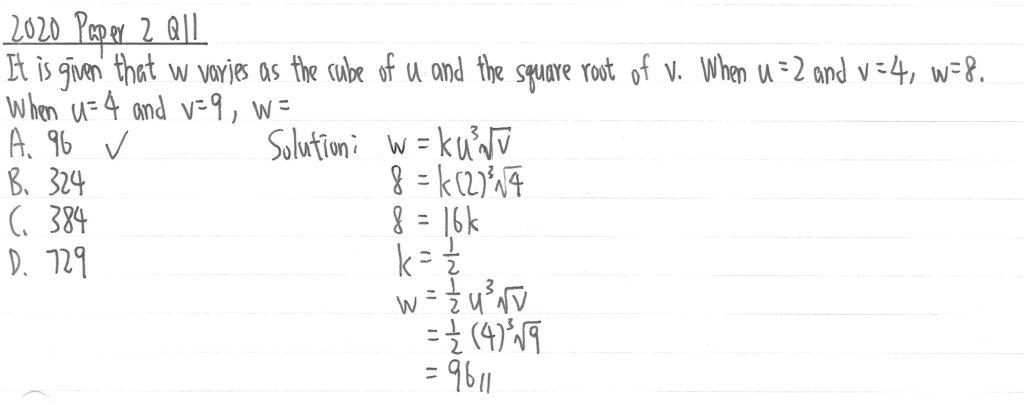 2020 Paper 2 Q11
It is given that w varies as the cube of u and the square root of v. When u=2 and v=4, w=8.
When u=4 and v=9, w=
A. 96 ✓
B. 324
C. 384
D. 729
Solution: w = ku³√v
8 = k(2)³√4
8 = 16k
k = 1/2
w = 1/2 u³√v
= 1/2 (4)³√9
= 96//